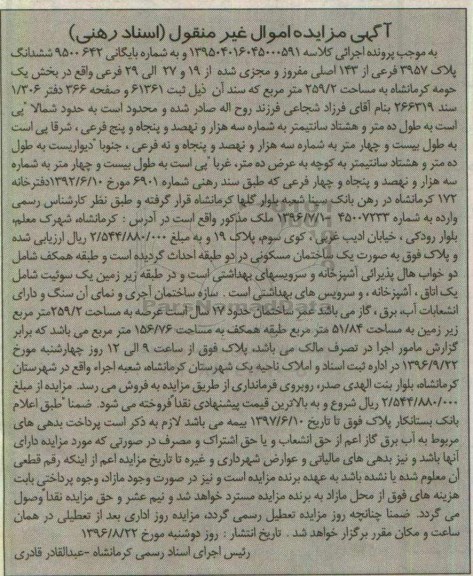 آگهی مزایده اموال غیر منقول (اسناد رهنی)
به موجب پرونده اجرائی کلاسه ۱۳۹۵۰۴۰۱۶۰۴۵۰۰۰۵۹۱ و به شماره بایگانی ۹۵۰۰۶۴۲ ششدانگ
پلاک ۳۹۵۷ فرعی از ۱۴۳ اصلی مفروز و مجزی شده از ۱۹ و ۲۷ الی ۲۹ فرعی واقع در بخش یک
حومه کرمانشاه به مساحت ۲۵۹/۲ متر مربع که سند آن ذیل ثبت ۶۱۳۶۱ و صفحه ۳۶۶ دفتر ۱/۳۰۶
سند ۲۶۶۳۱۹ بنام آقای فرزاد شجاعی فرزند روح اله صادر شده و محدود است به حدود شمالا "پی
است به طول ده متر و هشتاد سانتیمتر به شماره سه هزار و نهصد و پنجاه و پنج فرعی ، شرقا پی است
به طول بیست و چهار متر به شماره سه هزار و نهصد و پنجاه و نه فرعی ، جنوبا "دیواریست به طول
ده متر و هشتاد سانتیمتر به کوچه به عرض ده متر، غربا "پی است به طول بیست و چهار متر به شماره
سه هزار و نهصد و پنجاه و چهار فرعی که طبق سند رهنی شماره ۶۹۰۱ مورخ ۱۳۹۲/۶/۱۰ دفترخانه
۱۷۲ کرمانشاه در رهن بانک سینا شعبه بلوار گلها کرمانشاه قرار گرفته و طبق نظر کارشناس رسمی
وارده به شماره ۴۵۰۰۷۲۳۳ -۱۳۹۶/۷/۱ ملک مذکور واقع است در آدرس : کرمانشاه، شهرک معلم،
بلوار رودکی ، خیابان ادیب غربی ، کوی سوم، پلاک ۱۹ و به مبلغ ۲/۵۴۴/۸۸۰/۰۰۰ ریال ارزیابی شده
و پلاک فوق به صورت یک ساختمان مسکونی در دو طبقه احداث گردیده است و طبقه همکف شامل
دو خواب هال پذیرائی آشپزخانه و سرویسهای بهداشتی است و در طبقه زیر زمین یک سوئیت شامل
یک اتاق ، آشپزخانه ، و سرویس های بهداشتی است . سازه ساختمان آجری و نمای آن سنگ و دارای
انشعابات آب، برق ، گاز می باشد عمر ساختمان حدود ۱۷ سال است عرصه به مساحت ۲۵۹/۲ متر مربع
زیر زمین به مساحت ۵۱/۸۴ متر مربع طبقه همکف به مساحت ۱۵۶/۷۶ متر مربع می باشد که برابر
گزارش مامور اجرا در تصرف مالک می باشد، پلاک فوق از ساعت ۹ الی ۱۲ روز چهارشنبه مورخ
۱۳۹۶/۹/۲۲ در اداره ثبت اسناد و املاک ناحیه یک شهرستان کرمانشاه، شعبه اجراء واقع در شهرستان
کرمانشاه، بلوار بنت الهدی صدر، روبروی فرمانداری از طریق مزایده به فروش می رسد. مزایده از مبلغ
۲/۵۴۴/۸۸۰/۰۰۰ ریال شروع و به بالاترین قیمت پیشنهادی نقدا فروخته می شود. ضمنا "طبق اعلام
بانک بستانکار پلاک فوق تا تاریخ ۱۳۹۷/۶/۱۰ بیمه می باشد لازم به ذکر است پرداخت بدهی های
مربوط به آب برق گاز اعم از حق انشعاب و یا حق اشتراک و مصرف در صورتی که مورد مزایده دارای
آنها باشد و نیز بدهی های مالیاتی و عوارض شهرداری و غیره تا تاریخ مزایده اعم از اینکه رقم قطعی
آن معلوم شده یا نشده باشد به عهده برنده مزایده است و نیز در صورت وجود مازاد، وجوه پرداختی بابت
هزینه های فوق از محل مازاد به برنده مزایده مسترد خواهد شد و نیم عشر و حق مزایده نقدا وصول
می گردد. ضمنا چنانچه روز مزایده تعطیل رسمی گردد، مزایده روز اداری بعد از تعطیلی در همان
ساعت و مکان مقرر برگزار خواهد شد . تاریخ انتشار : روز دوشنبه مورخ ۱۳۹۶/۸/۲۲
رئیس اجرای اسناد رسمی کرمانشاه -عبدالقادر قادری